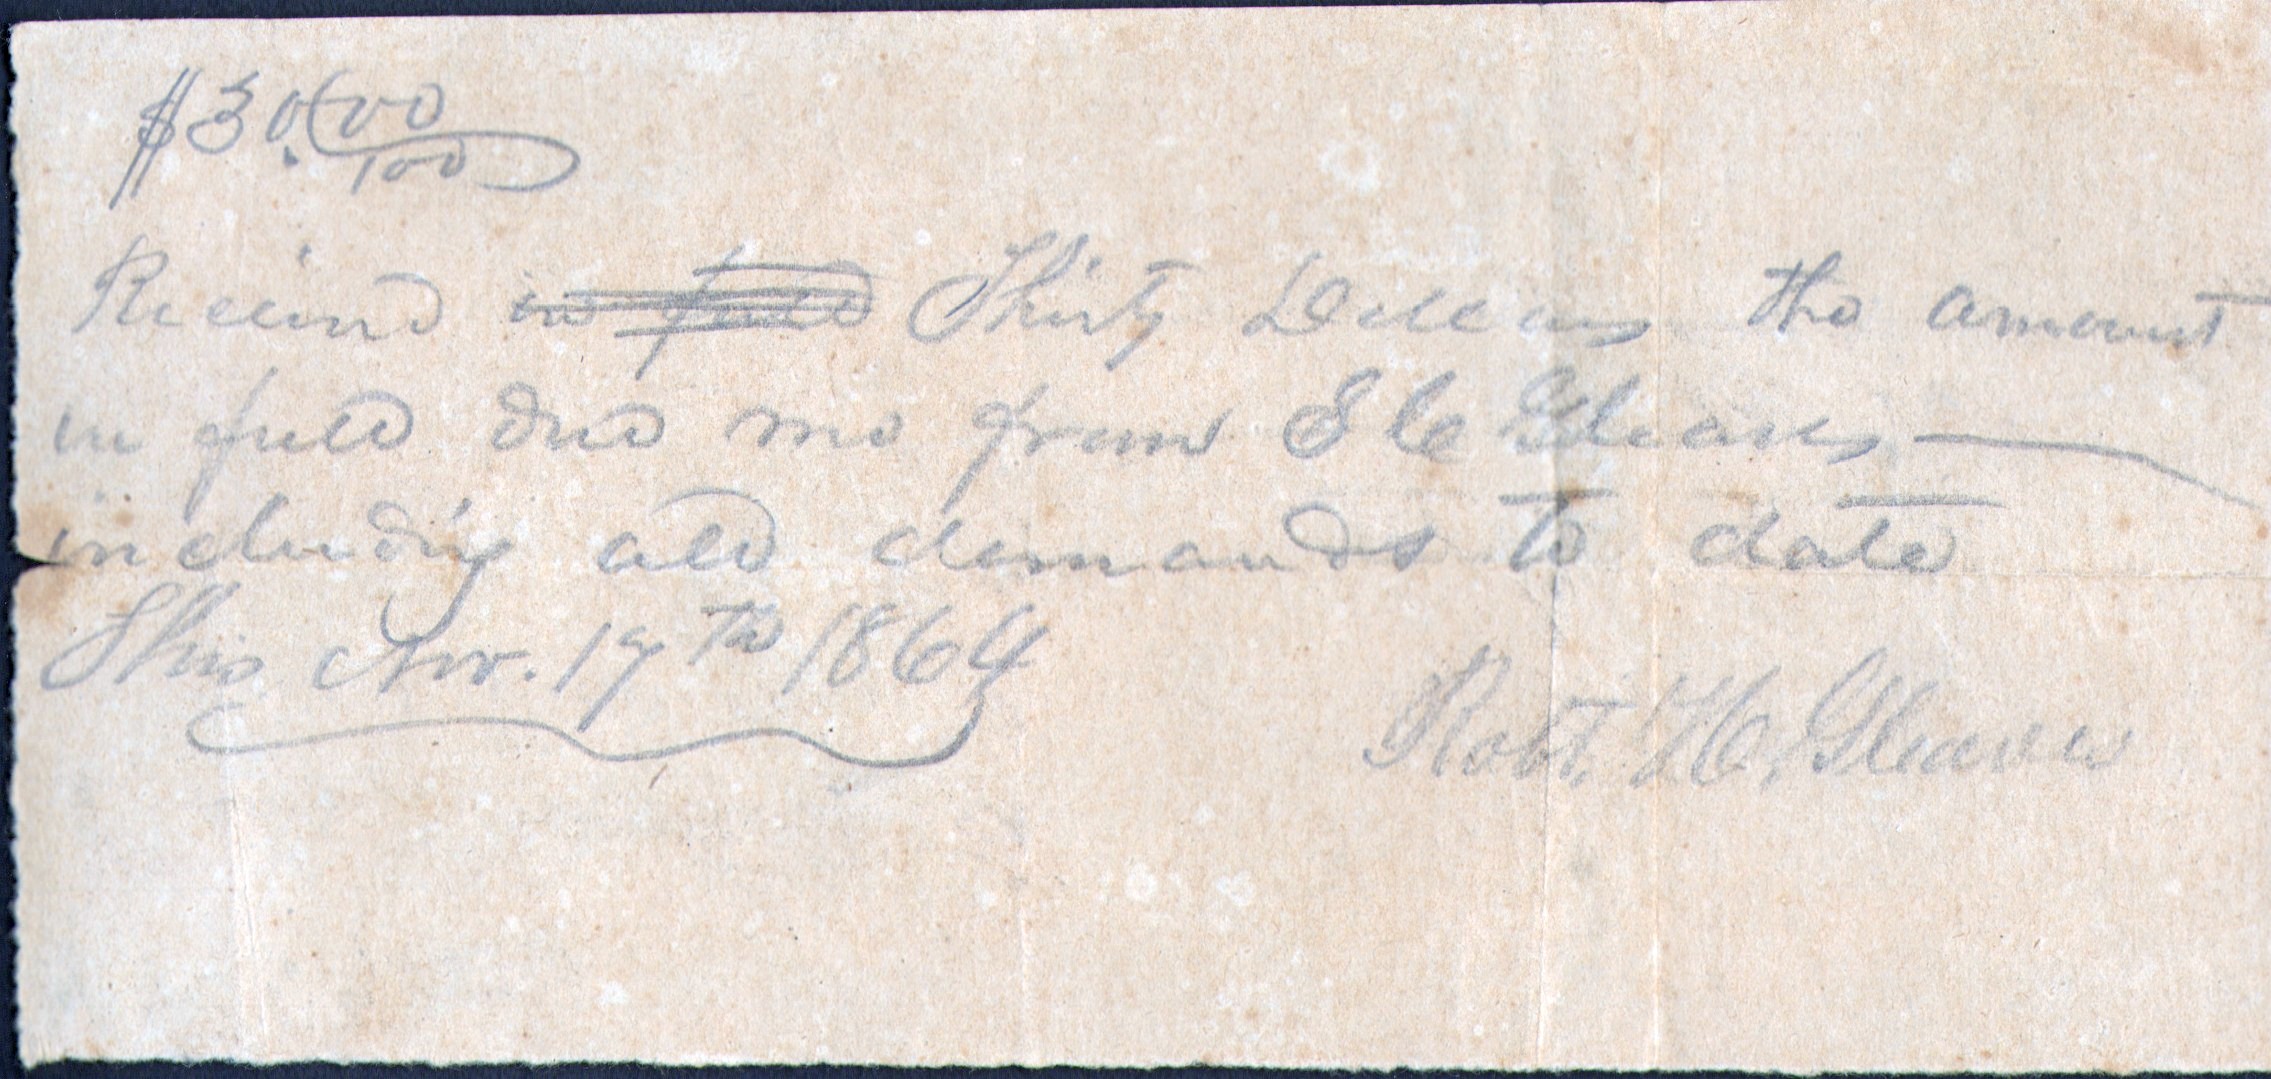 $30.00/100
Received in full Thirty Dollars the amount
in full due me from S C Gleaves
including all demands to date
This Nov. 17th 1864
Robt. H. Gleaves